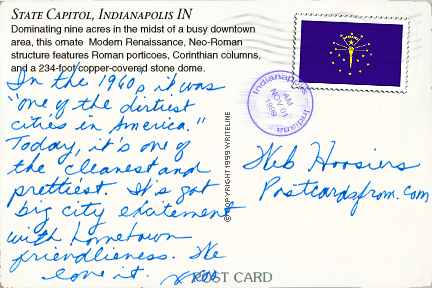 STATE CAPITOL, INDIANAPOLIS IN
Dominating nine acres in the midst of a busy downtown
area, this ornate Modern Renaissance, Neo-Roman
structure features Roman porticoes, Corinthian columns,
and a 234-foot copper-covered stone dome.
In the 1960s it was
"one of the dirtiest
cities in America."
Today, it's one of
the cleanest and
prettiest. It's got
big city excitement
with hometown
friendlieness. We
love it.
Indianapolis
AM
NOV 01
1999
Indiana
© COPYRIGHT 1999 WRITELINE
Web Hoosiers
Postcardsfrom.com
POST CARD